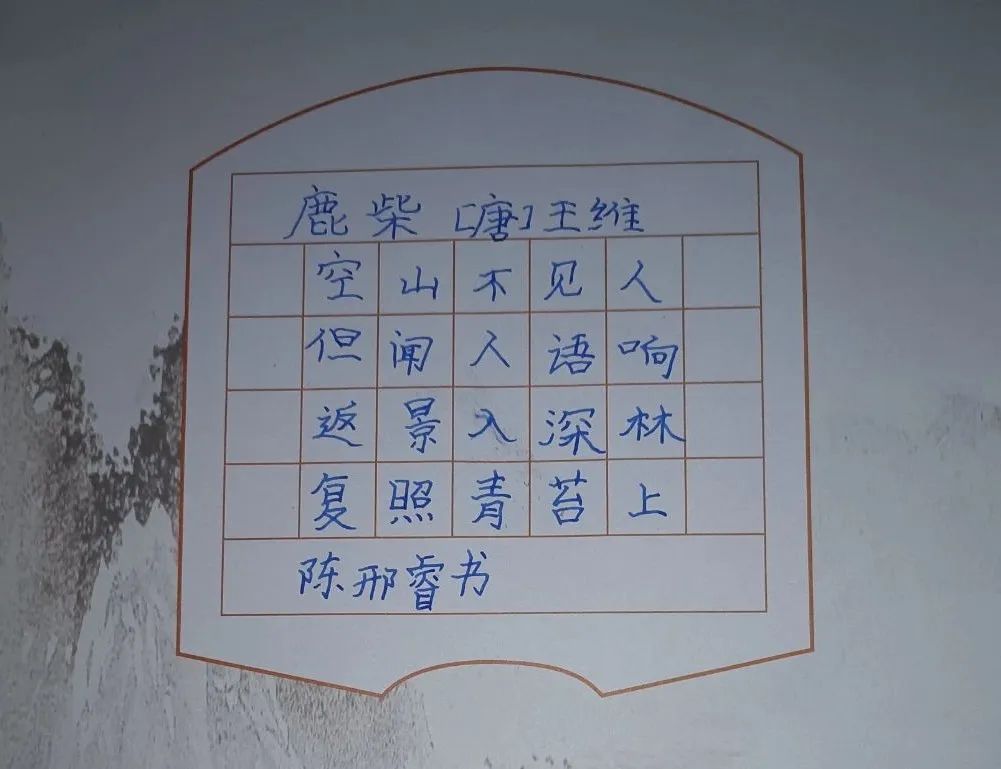 鹿柴 [唐]王维
空山不见人
但闻人语响
返景入深林
复照青苔上
陈邢睿书